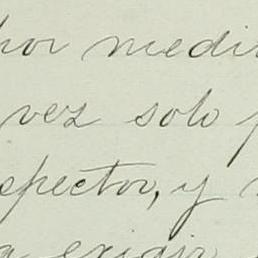 por medi
vez solo p
spector, y
a exigir